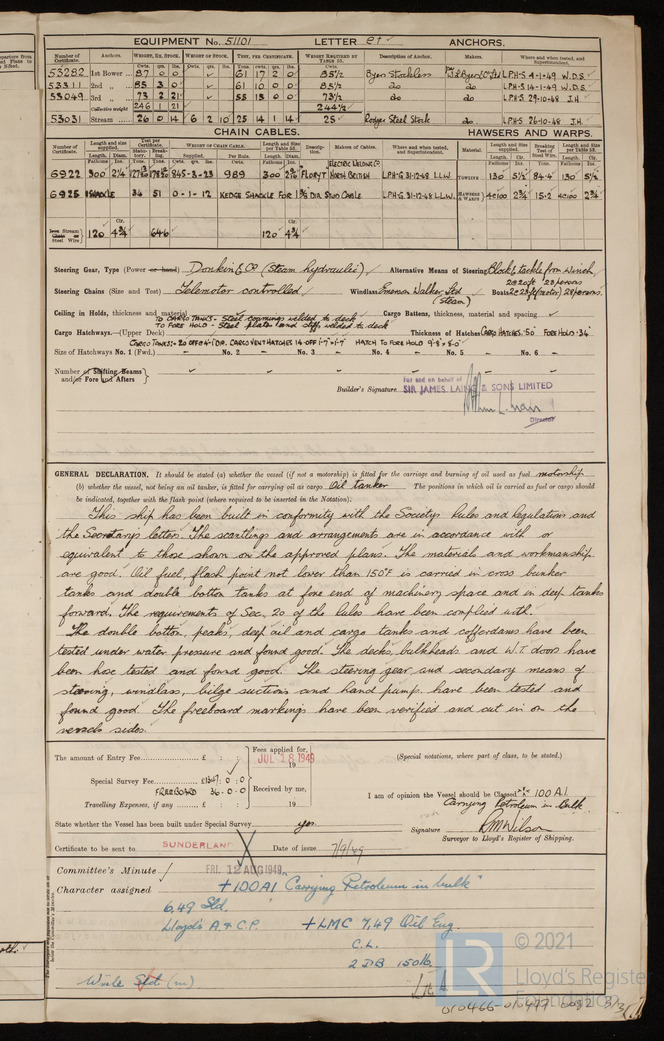 EQUIPMENT No. 51101 LETTER et ANCHORS.
Number of Certificate. Anchors. WEIGHT, EX. STOCK. WEIGHT OF STOCK. TEST, PER CERTIFICATE. WEIGHT REQUIRED BY TABLE 53. Description of Anchor. Makers. Where and when tested, and Superintendent.
Cwts. qrs. lbs. Cwts. qrs. lbs. Tons. cwts. qrs. lbs. Cwts.
53282 1st Bower 87 0 0 61 17 2 0 85½ Byers Stockless LPH-S 4-1-49 W.D.S.
53311 2nd „ 85 3 0 61 10 0 0 85½ do do LPH-S 14-1-49 W.D.S.
53049 3rd „ 73 2 21 55 15 0 0 73½ do do LPH-S. 29-10-48 J.H.
Collective weight 246 1 21 244½
53031 Stream 26 0 14 6 2 10 25 14 1 14 25 Rodger Steel Stock do. LPHS 26-10-48 J.H.
CHAIN CABLES. HAWSERS AND WARPS.
Number of Certificate. Length and size supplied. Test per Certificate. WEIGHT OF CHAIN CABLE. Length and size per Table 53. Description. Makers of Cables. Where and when tested, and Superintendent. Material. Length and Size supplied. Breaking Test of Steel Wire. Length and Size per Table 53.
Length. Diam. Supplied. Per Rule. Length. Diam. Length. Cir. Length. Cir.
6922 300 2¼ 845-3-23 989 300 FLORYT NORTH BRITISH ELECTRIC WELDING CO. LPH-G 31-12-48 L.L.W. TOWLINE 130 5½ 84·4 130 5½
6925 1 SHACKLE 34 51 0-1-12 KEDGE SHACKLE FOR DIA. STUD CABLE LPH-G 31-12-48 L.L.W. HAWSERS & WARPS 4@100 2¾ 15·2 4@100 2¾
Stream Steel Wire} 120 4¾ 64·6 120 4¾
Steering Gear, Type (Power or hand) Donkin & Co (Steam hydraulic) Alternative Means of Steering Block & tackle from Winch.
Steering Chains (Size and Test) Telemotor controlled Windlass Emerson Walker Ltd (Steam) Boats
Ceiling in Holds, thickness and material TO CARGO TANKS - Steel coamings welded to deck Cargo Battens, thickness, material and spacing
TO FORE HOLD - Steel plates and stiffs welded to deck
Cargo Hatchways.—(Upper Deck) Thickness of Hatches CARGO HATCHES ·50 FORE HOLD ·34
HATCH TO FORE HOLD 9'-8" x 8'-0"
Size of Hatchways No. 1 (Fwd.) - No. 2 - No. 3 - No. 4 - No. 5 - No. 6 -
Number of Shifting Beams and/or Fore and Afters}
For and on behalf of
Builder's Signature SIR JAMES LAING & SONS LIMITED
Director
GENERAL DECLARATION. It should be stated (a) whether the vessel (if not a motorship) is fitted for the carriage and burning of oil used as fuel motorship
(b) whether the vessel, not being an oil tanker, is fitted for carrying oil as cargo Oil tanker The positions in which oil is carried as fuel or cargo should
be indicated, together with the flash point (where required to be inserted in the Notation).
This ship has been built in conformity with the Societys Rules and Regulations and
the Secretarys letters. The scantlings and arrangements are in accordance with or
equivalent to those shown on the approved plans. The materials and workmanship
are good. Oil fuel, flash point not lower than 150°F is carried in cross bunker
tanks and double bottom tanks at fore end of machinery space and in deep tanks
forward. The requirements of Sec. 20 of the Rules have been complied with.
The double bottom, peaks, deep oil and cargo tanks and cofferdams have been
tested under water pressure and found good. The decks, bulkheads and W.T. doors have
been hose tested and found good. The steering gear and secondary means of
steering, windlass, bilge suctions and hand pump, have been tested and
found good. The freeboard markings have been verified and cut in on the
vessels sides.
The amount of Entry Fee £ : : Fees applied for, (Special notations, where part of class, to be stated.)
JUL 18 1949
Special Survey Fee £ : 0 : 0
FREEBOARD 36-0-0 Received by me, I am of opinion the Vessel should be Classed 100 A1
Travelling Expenses, if any £ : : 19 Carrying Petroleum in bulk.
State whether the Vessel has been built under Special Survey yes. Signature RM Wilson
Surveyor to Lloyd's Register of Shipping.
Certificate to be sent to SUNDERLAND Date of issue 7/9/49
Committee's Minute FRI. 12 AUG 1949
Character assigned +100A1 "Carrying Petroleum in bulk"
6,49 Sld.
Lloyd's A & C.P. +LMC 7,49 Oil Eng.
C.L.
2 DB 150 lb.
Write Sld (m)
© 2021
Lloyd's Register
Foundation
010466-010477-0082 3/3